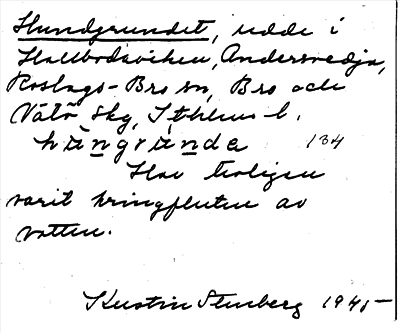 Hundgrundet, udde i
Hallbodaviken, Andersvedja,
Roslags-Bro sn, Bro och
Vätö skg, Sthlms l.
hǜngrùnde 134
Har troligen
varit kringfluten av
vatten.
Kerstin Stenberg 1941